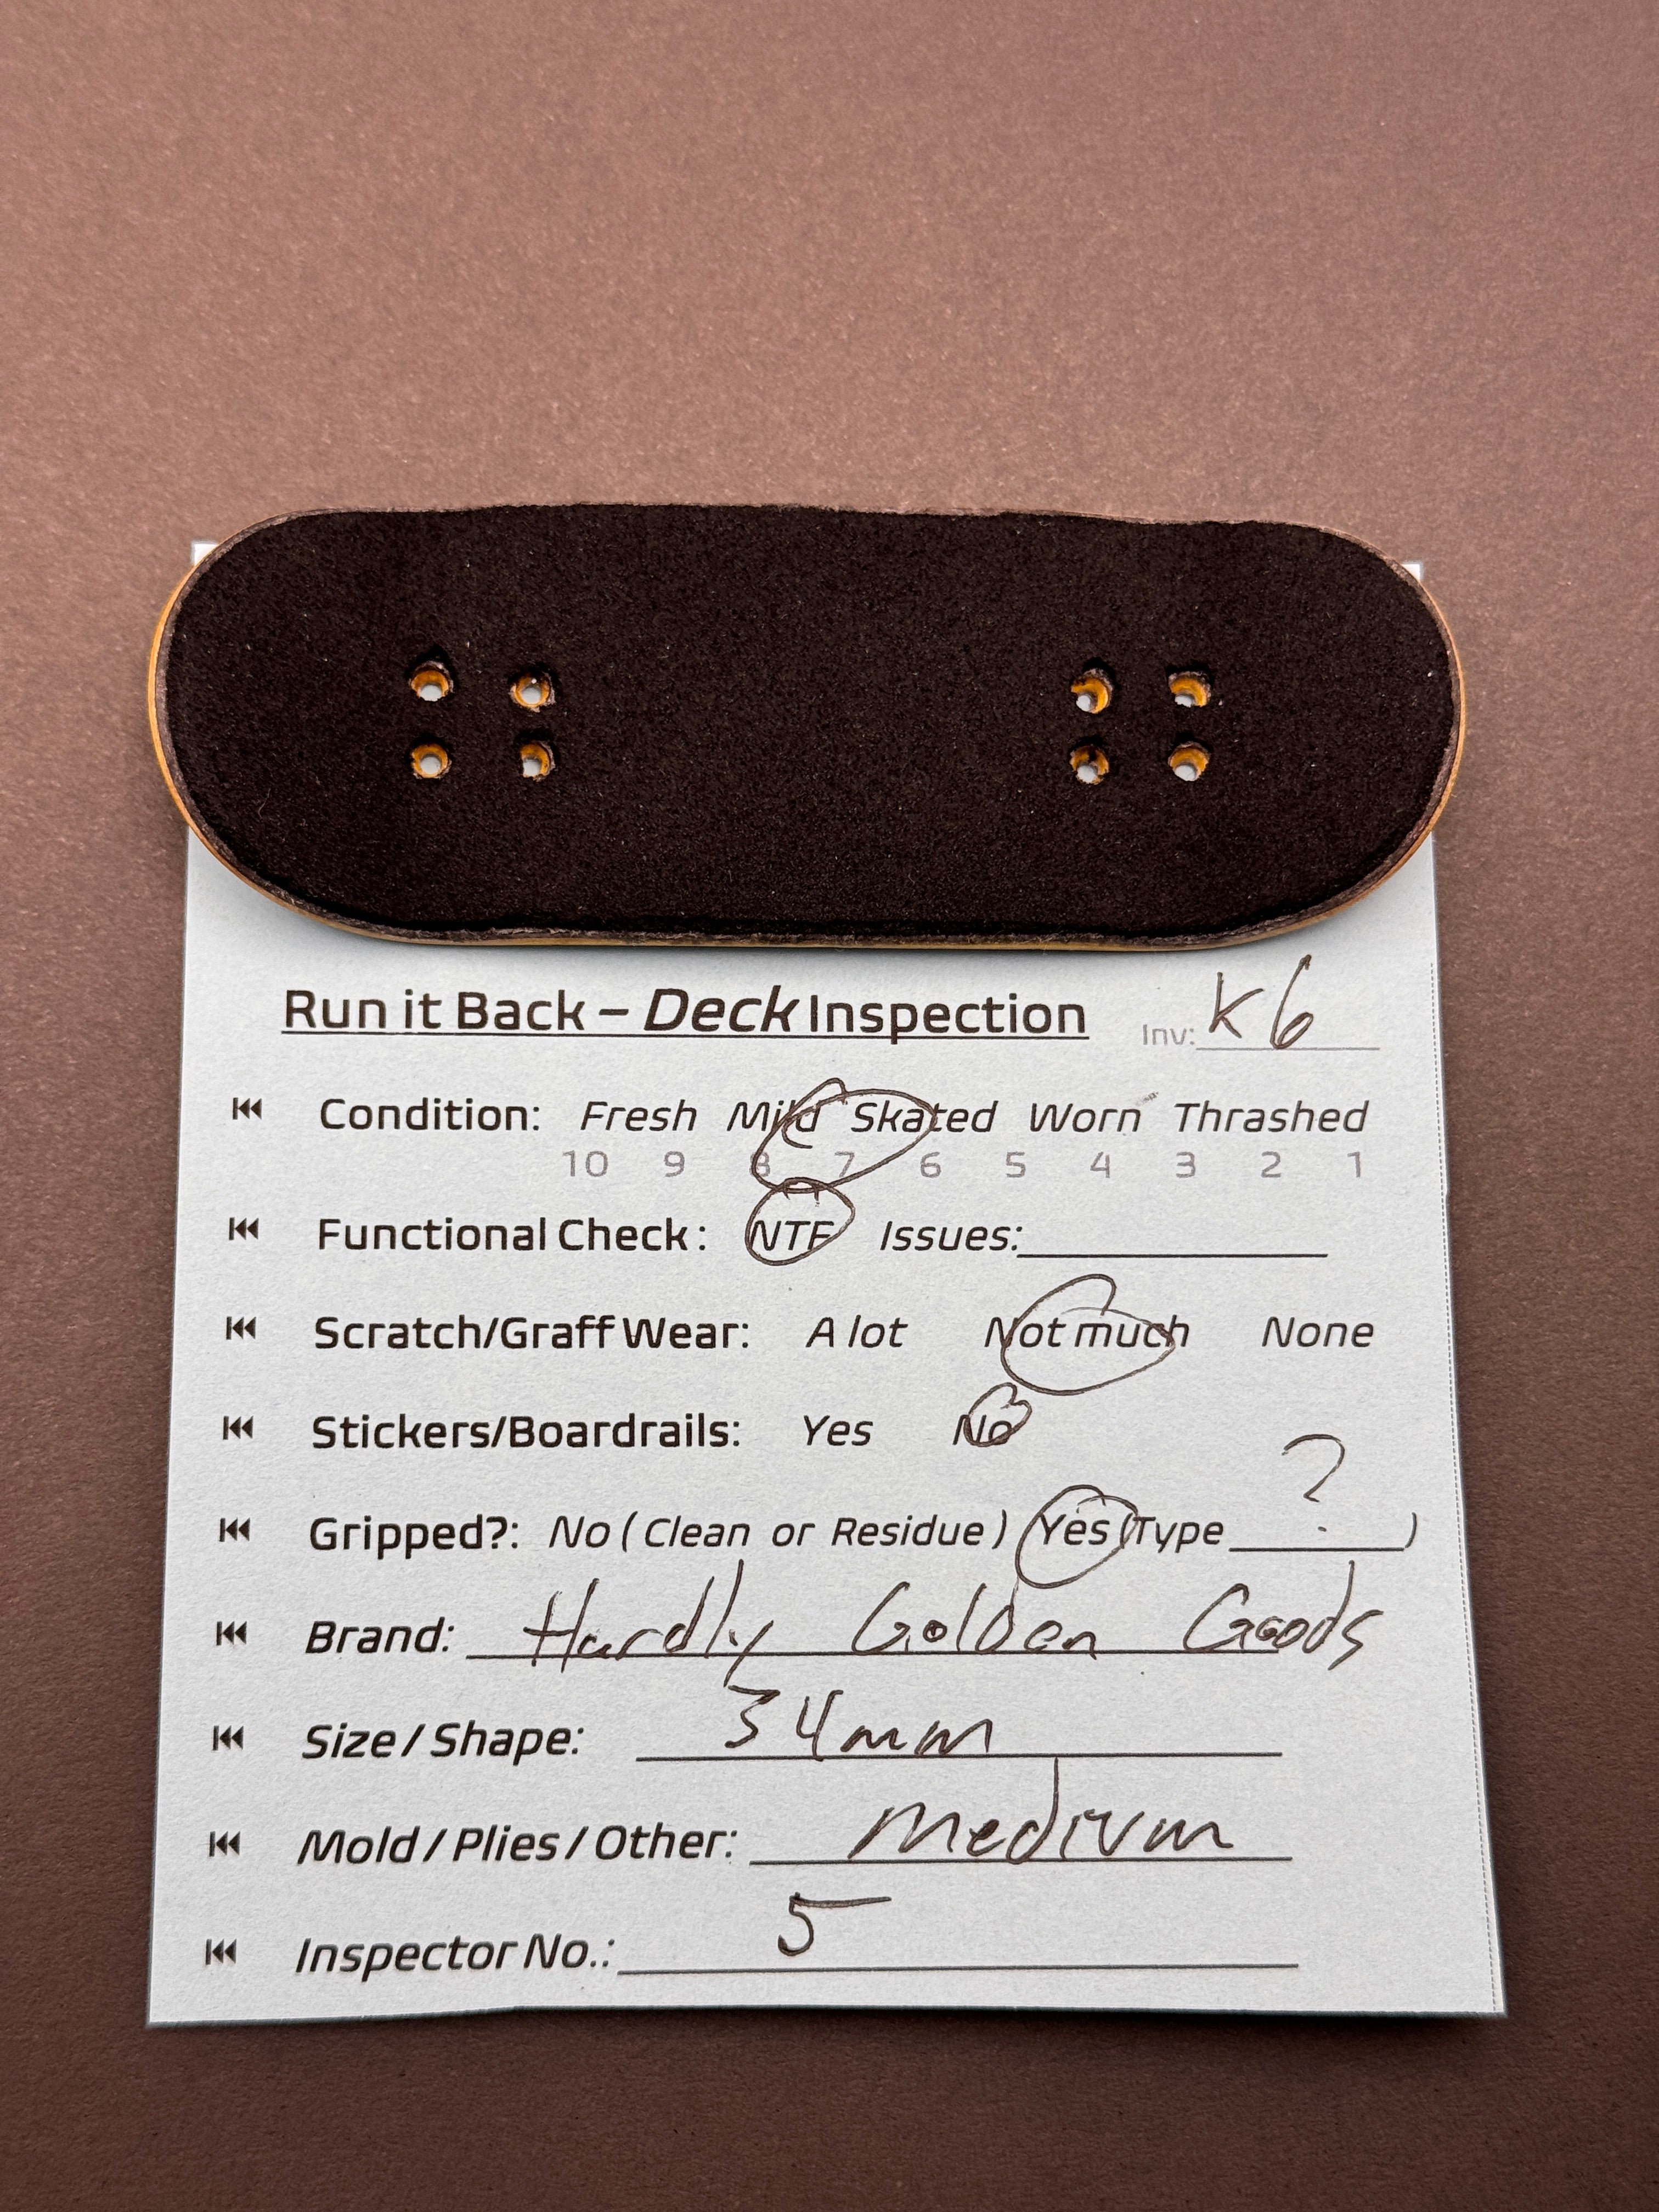 Run it Back – Deck Inspection Inv: K6
Condition: Fresh Mild Skated Worn Thrashed
10 9 8 7 6 5 4 3 2 1
Functional Check: NTF Issues:
Scratch/Graff Wear: A lot Not much None
Stickers/Boardrails: Yes No
Gripped?: No (Clean or Residue) Yes (Type ? )
Brand: Hardly Golden Goods
Size / Shape: 34mm
Mold / Plies / Other: Medium
Inspector No.: 5